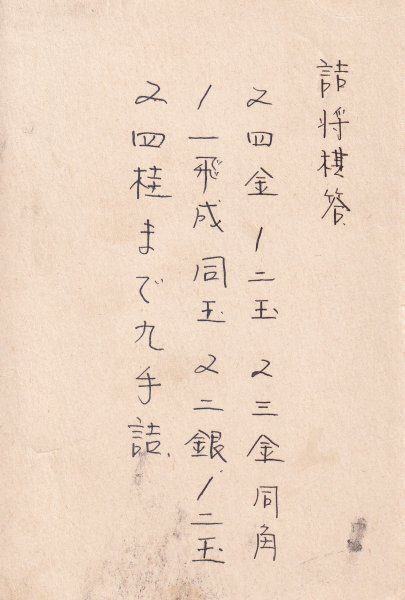 詰将棋答
2四金 1二玉 2三金 同角
1一飛成 同玉 2二銀 1二玉
2四桂まで九手詰、